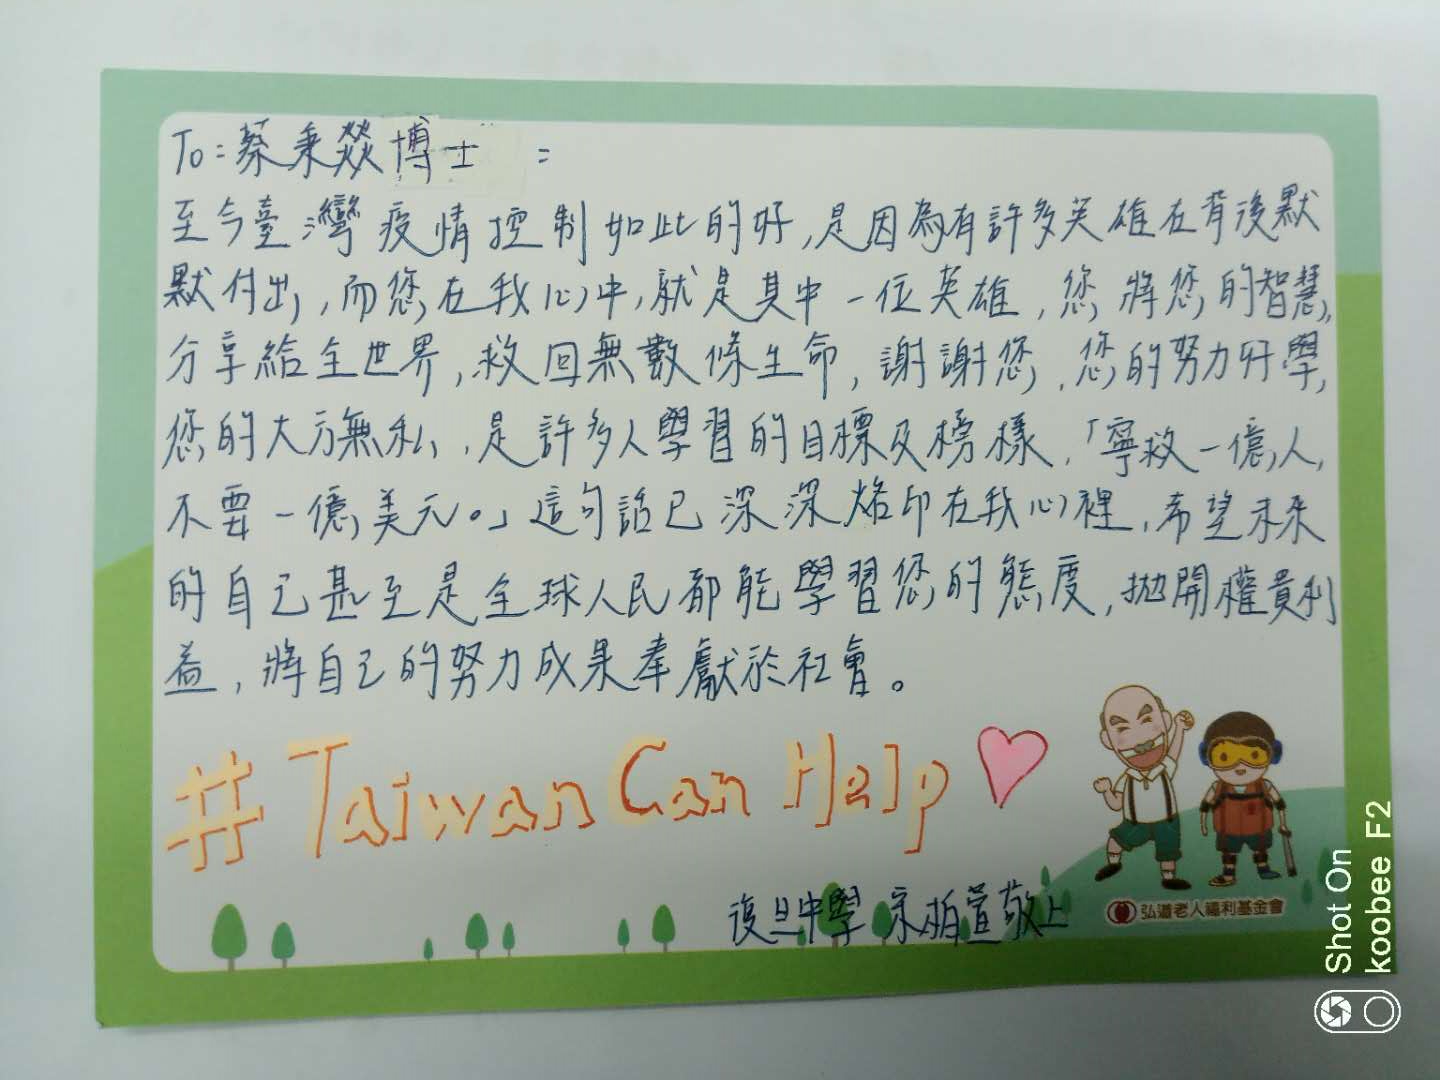 To:蔡秉燚博士:
至今臺灣疫情控制如此的好,是因為有許多英雄在背後默
默付出,而您在我心中,就是其中一位英雄,您將您的智慧,
分享給全世界,救回無數條生命,謝謝您,您的努力好學,
您的大方無私,是許多人學習的目標及榜樣,「寧救一億人,
不要一億美元。」這句話已深深烙印在我心裡,希望未來
的自己甚至是全球人民都能學習您的態度,拋開權貴利
益,將自己的努力成果奉獻於社會。
#Taiwan Can Help
復旦中學 宗柏萱敬上
弘道老人福利基金會
Shot On
koobee F2